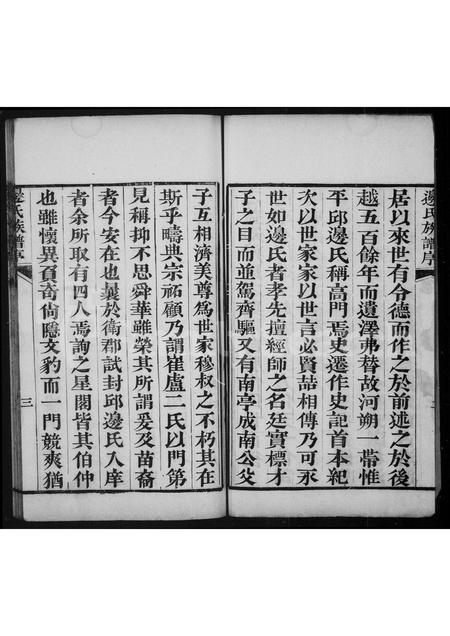 邊氏族譜序
居以來世有令德而作之於前述之於後
越五百餘年而遺澤弗替故河朔一帶惟
平邱邊氏稱高門焉史遷作史記首本紀
次以世家家以世言必賢喆相傳乃可永
世如邊氏者孝先擅經師之名廷實標才
子之目而並駕齊驅又有南亭成南公父
子互相濟美尊爲世家穆叔之不朽其在
斯乎疇典宗祏顧乃謂崔盧二氏以門第
見稱抑不思舜華雖榮其所謂爰及苗裔
者今安在也曩於衛郡試封邱邊氏入庠
者余所取有四人焉詢之星閣皆其伯仲
也雖懷異負奇尚隱文豹而一門競爽猶
邊氏族譜序
三